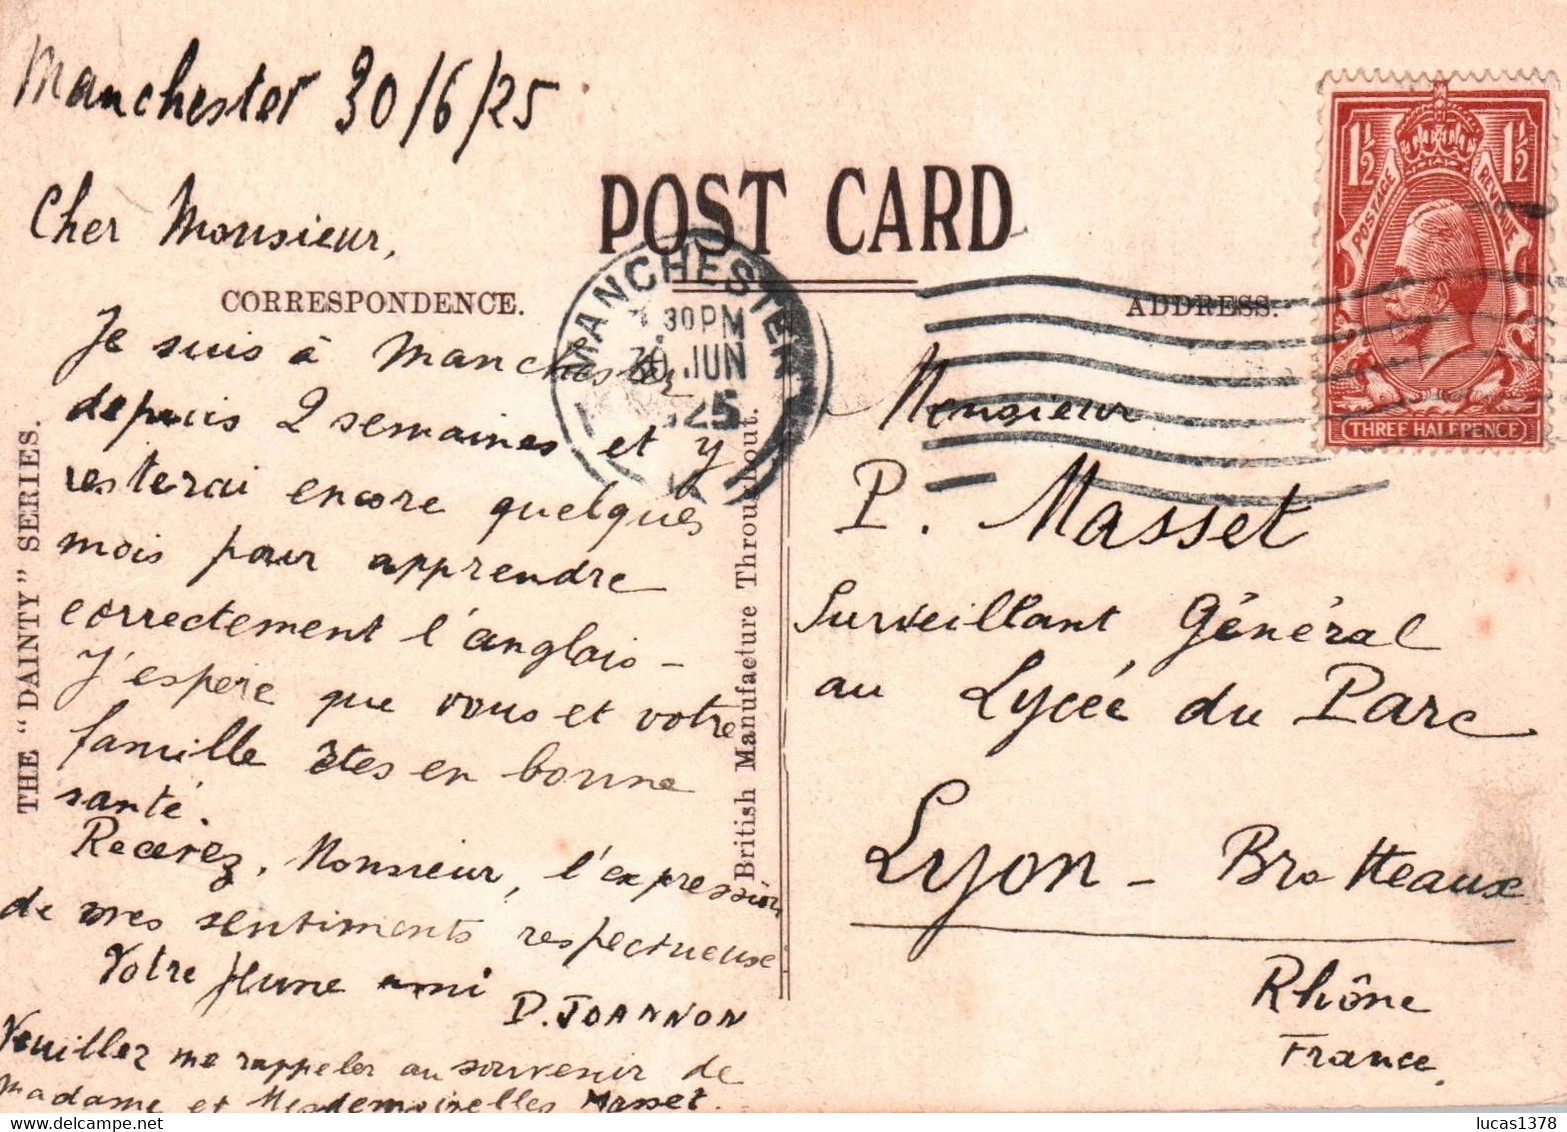 Manchester 30/6/25
Cher Monsieur,
POST CARD
CORRESPONDENCE.
ADDRESS.
Je suis à Manchester
depuis 2 semaines et y
resterai encore quelques
mois pour apprendre
correctement l'anglais -
J'espère que vous et votre
famille êtes en bonne
santé.
Recevez, Monsieur, l'expression
de mes sentiments respectueux
Votre jeune ami
D. JOANNON
Veuillez me rappeler au souvenir de
Madame et Mesdemoiselles Masset.
THE "DAINTY" SERIES.
British Manufacture Throughout.
MANCHESTER
30 PM
30 JUN
1925
POSTAGE
REVENUE
1½
1½
THREE HALFPENCE
Monsieur
P. Masset
Surveillant Général
au Lycée du Parc
Lyon - Brotteaux
Rhône
France
lucas1378